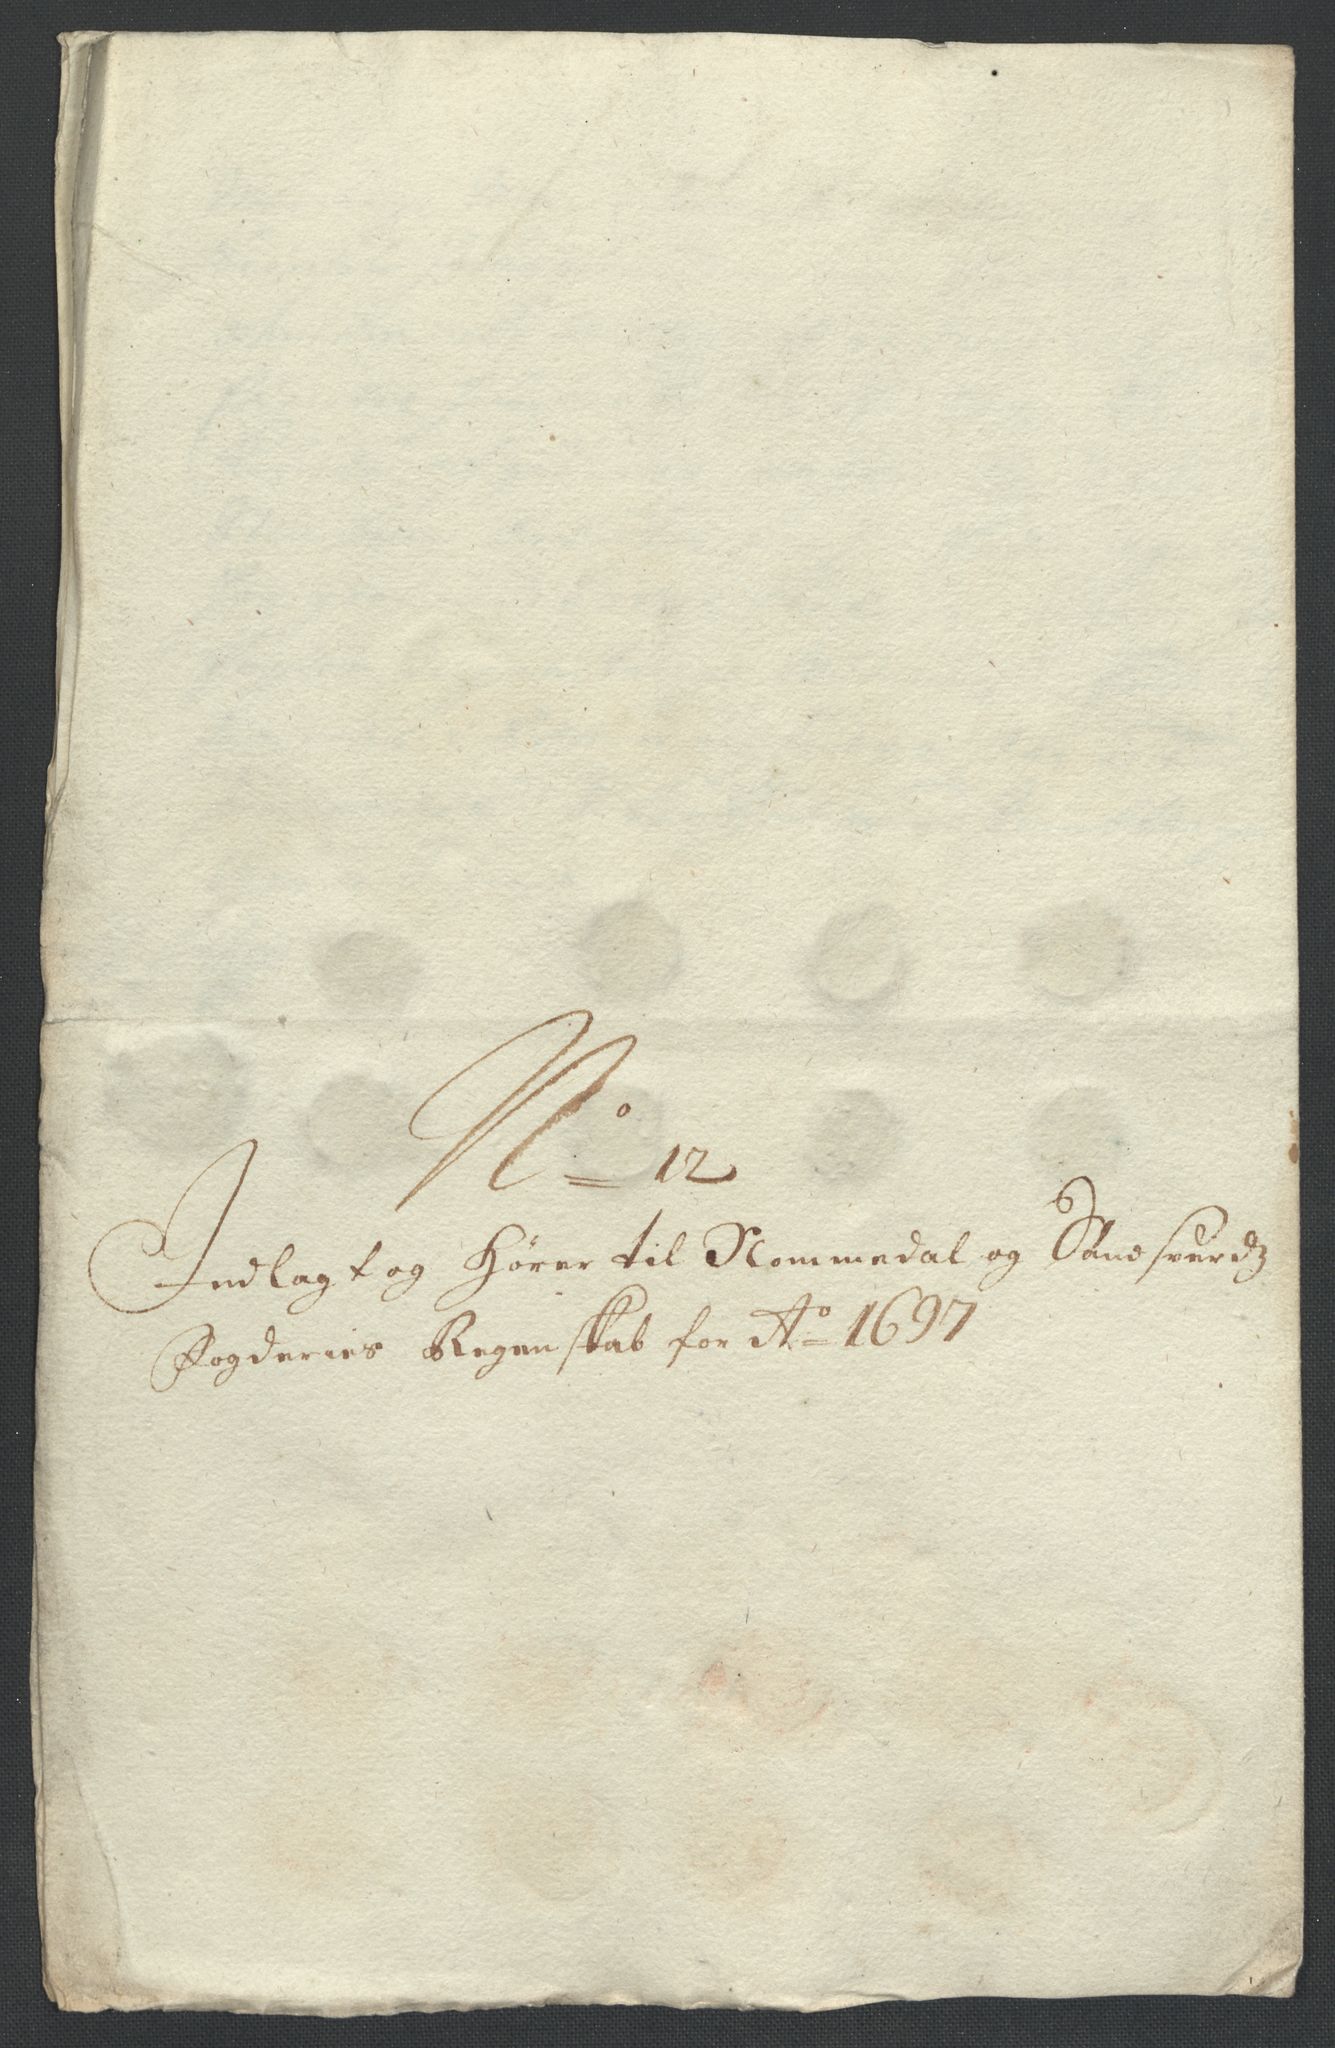 No 12
Indlagt og hörer til Nommedal og Sandsverdz
Fogderies Regenskab for Ao 1697